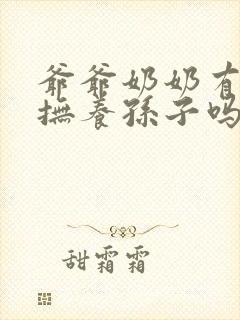 爺爺奶奶有
撫養孫子嗎
甜霜霜